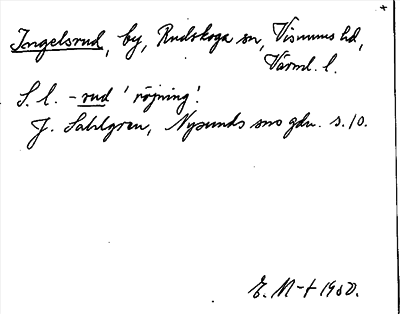 Ingelsrud, by, Rudskoga sn, Visnums hd,
Värml. l.
S. l. -rud 'röjning'.
J. Sahlgren, Nysunds sns gdn. s. 10.
E. M-t 1950.